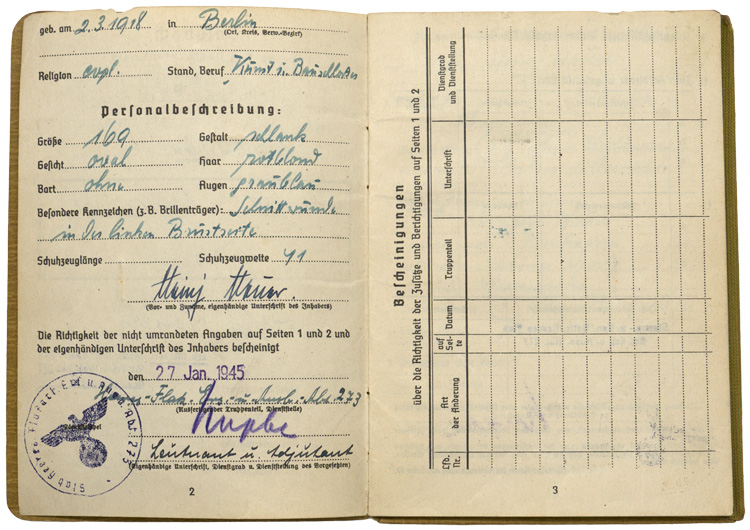 geb. am 2.3.1918 in Berlin
(Ort, Kreis, Verw.-Bezirk)
Religion evgl. Stand, Beruf Kunst u. Bauschlosser
Personalbeschreibung:
Größe 169 Gestalt schlank
Gesicht oval Haar rotblond
Bart ohne Augen graublau
Besondere Kennzeichen (z. B. Brillenträger): Schnittwunde
in der linken Brustseite
Schuhzeuglänge Schuhzeugweite 41
Heinz
(Vor- und Zuname, eigenhändige Unterschrift des Inhabers)
Die Richtigkeit der nicht umrandeten Angaben auf Seiten 1 und 2 und
der eigenhändigen Unterschrift des Inhabers bescheinigt
den 27. Jan. 1945
Heeres-Flak-Ers.- u. Ausb.-Abt 273
(Ausfertigender Truppenteil, Dienststelle)
Leutnant u. Adjutant
(Eigenhändige Unterschrift, Dienstgrad u. Dienststellung des Vorgesetzten)
2
Bescheinigungen
über die Richtigkeit der Zusätze und Berichtigungen auf Seiten 1 und 2
Lfd.
Nr.
Art
der Änderung
auf
Sei-
te
Datum
Truppenteil
Unterschrift
Dienstgrad
und Dienststellung
3